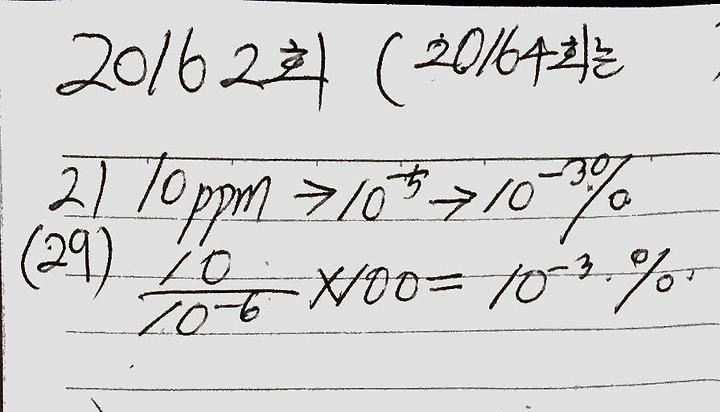 2016 2회 (2016 4회는
21 10ppm → 10⁻⁵ → 10⁻³%
(29) 10/10⁻⁶ × 100 = 10⁻³.%.